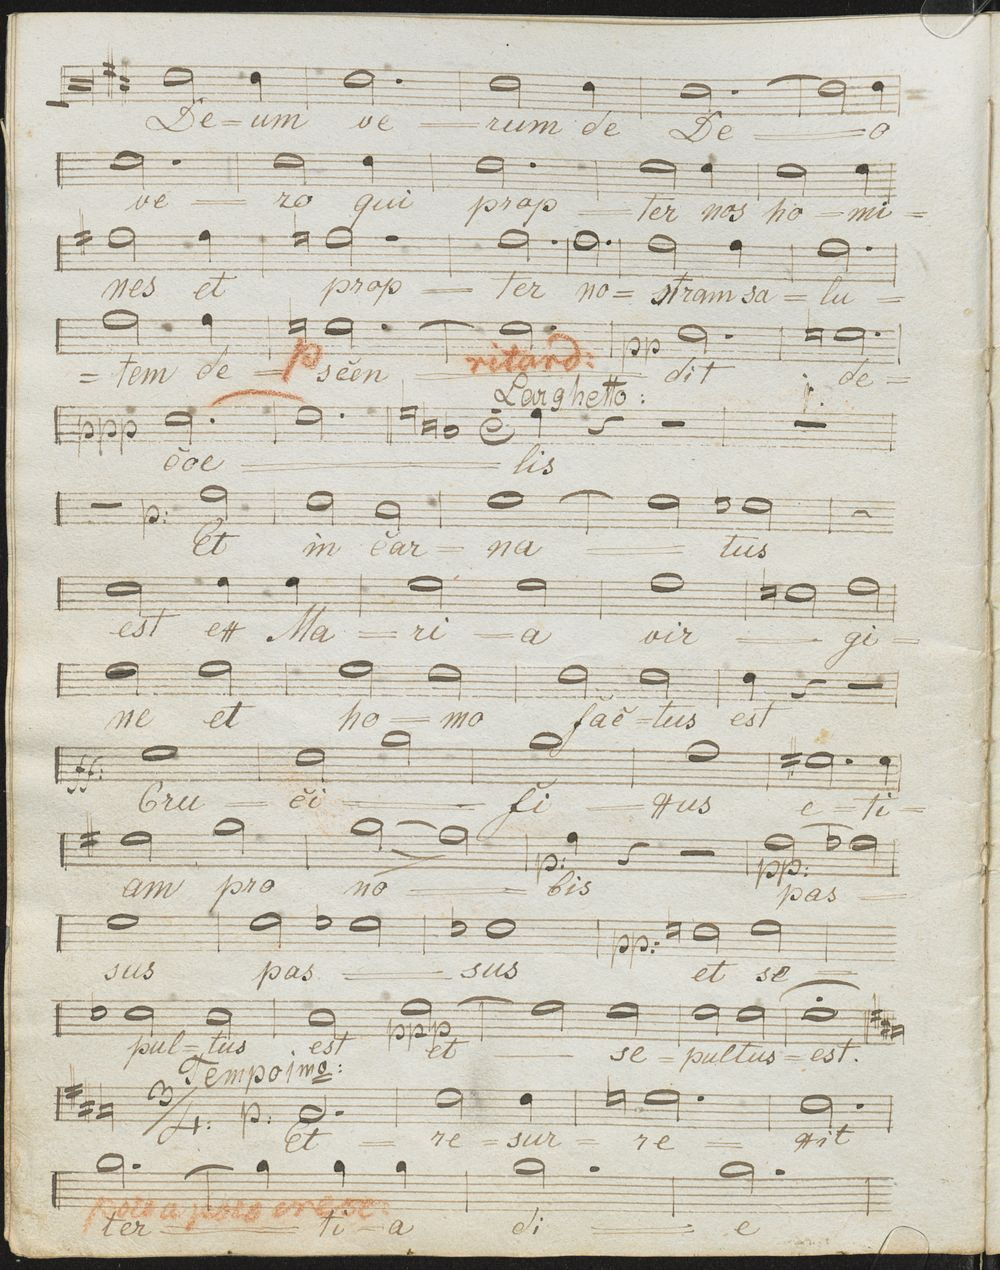 De-um ve - rum de De - o
ve - ro qui prop - ter nos ho-mi-
nes et prop - ter no- stram sa-lu-
-tem de - scen - dit de-
p ritard: pp
Larghetto:
ppp coe - lis
p: Et in car-na - tus
est ex Ma-ri-a vir - gi-
ne et ho-mo fac-tus est
ff: Cru - ci - fi - xus e-ti-
am pro no - bis pas -
p: pp:
sus pas - sus et se -
pp:
pul-tus est et - se-pultus-est.
ppp
Tempo imo:
3/4: p: Et - re-sur-re - xit
poco a poco cresc:
ter - ti-a di - e